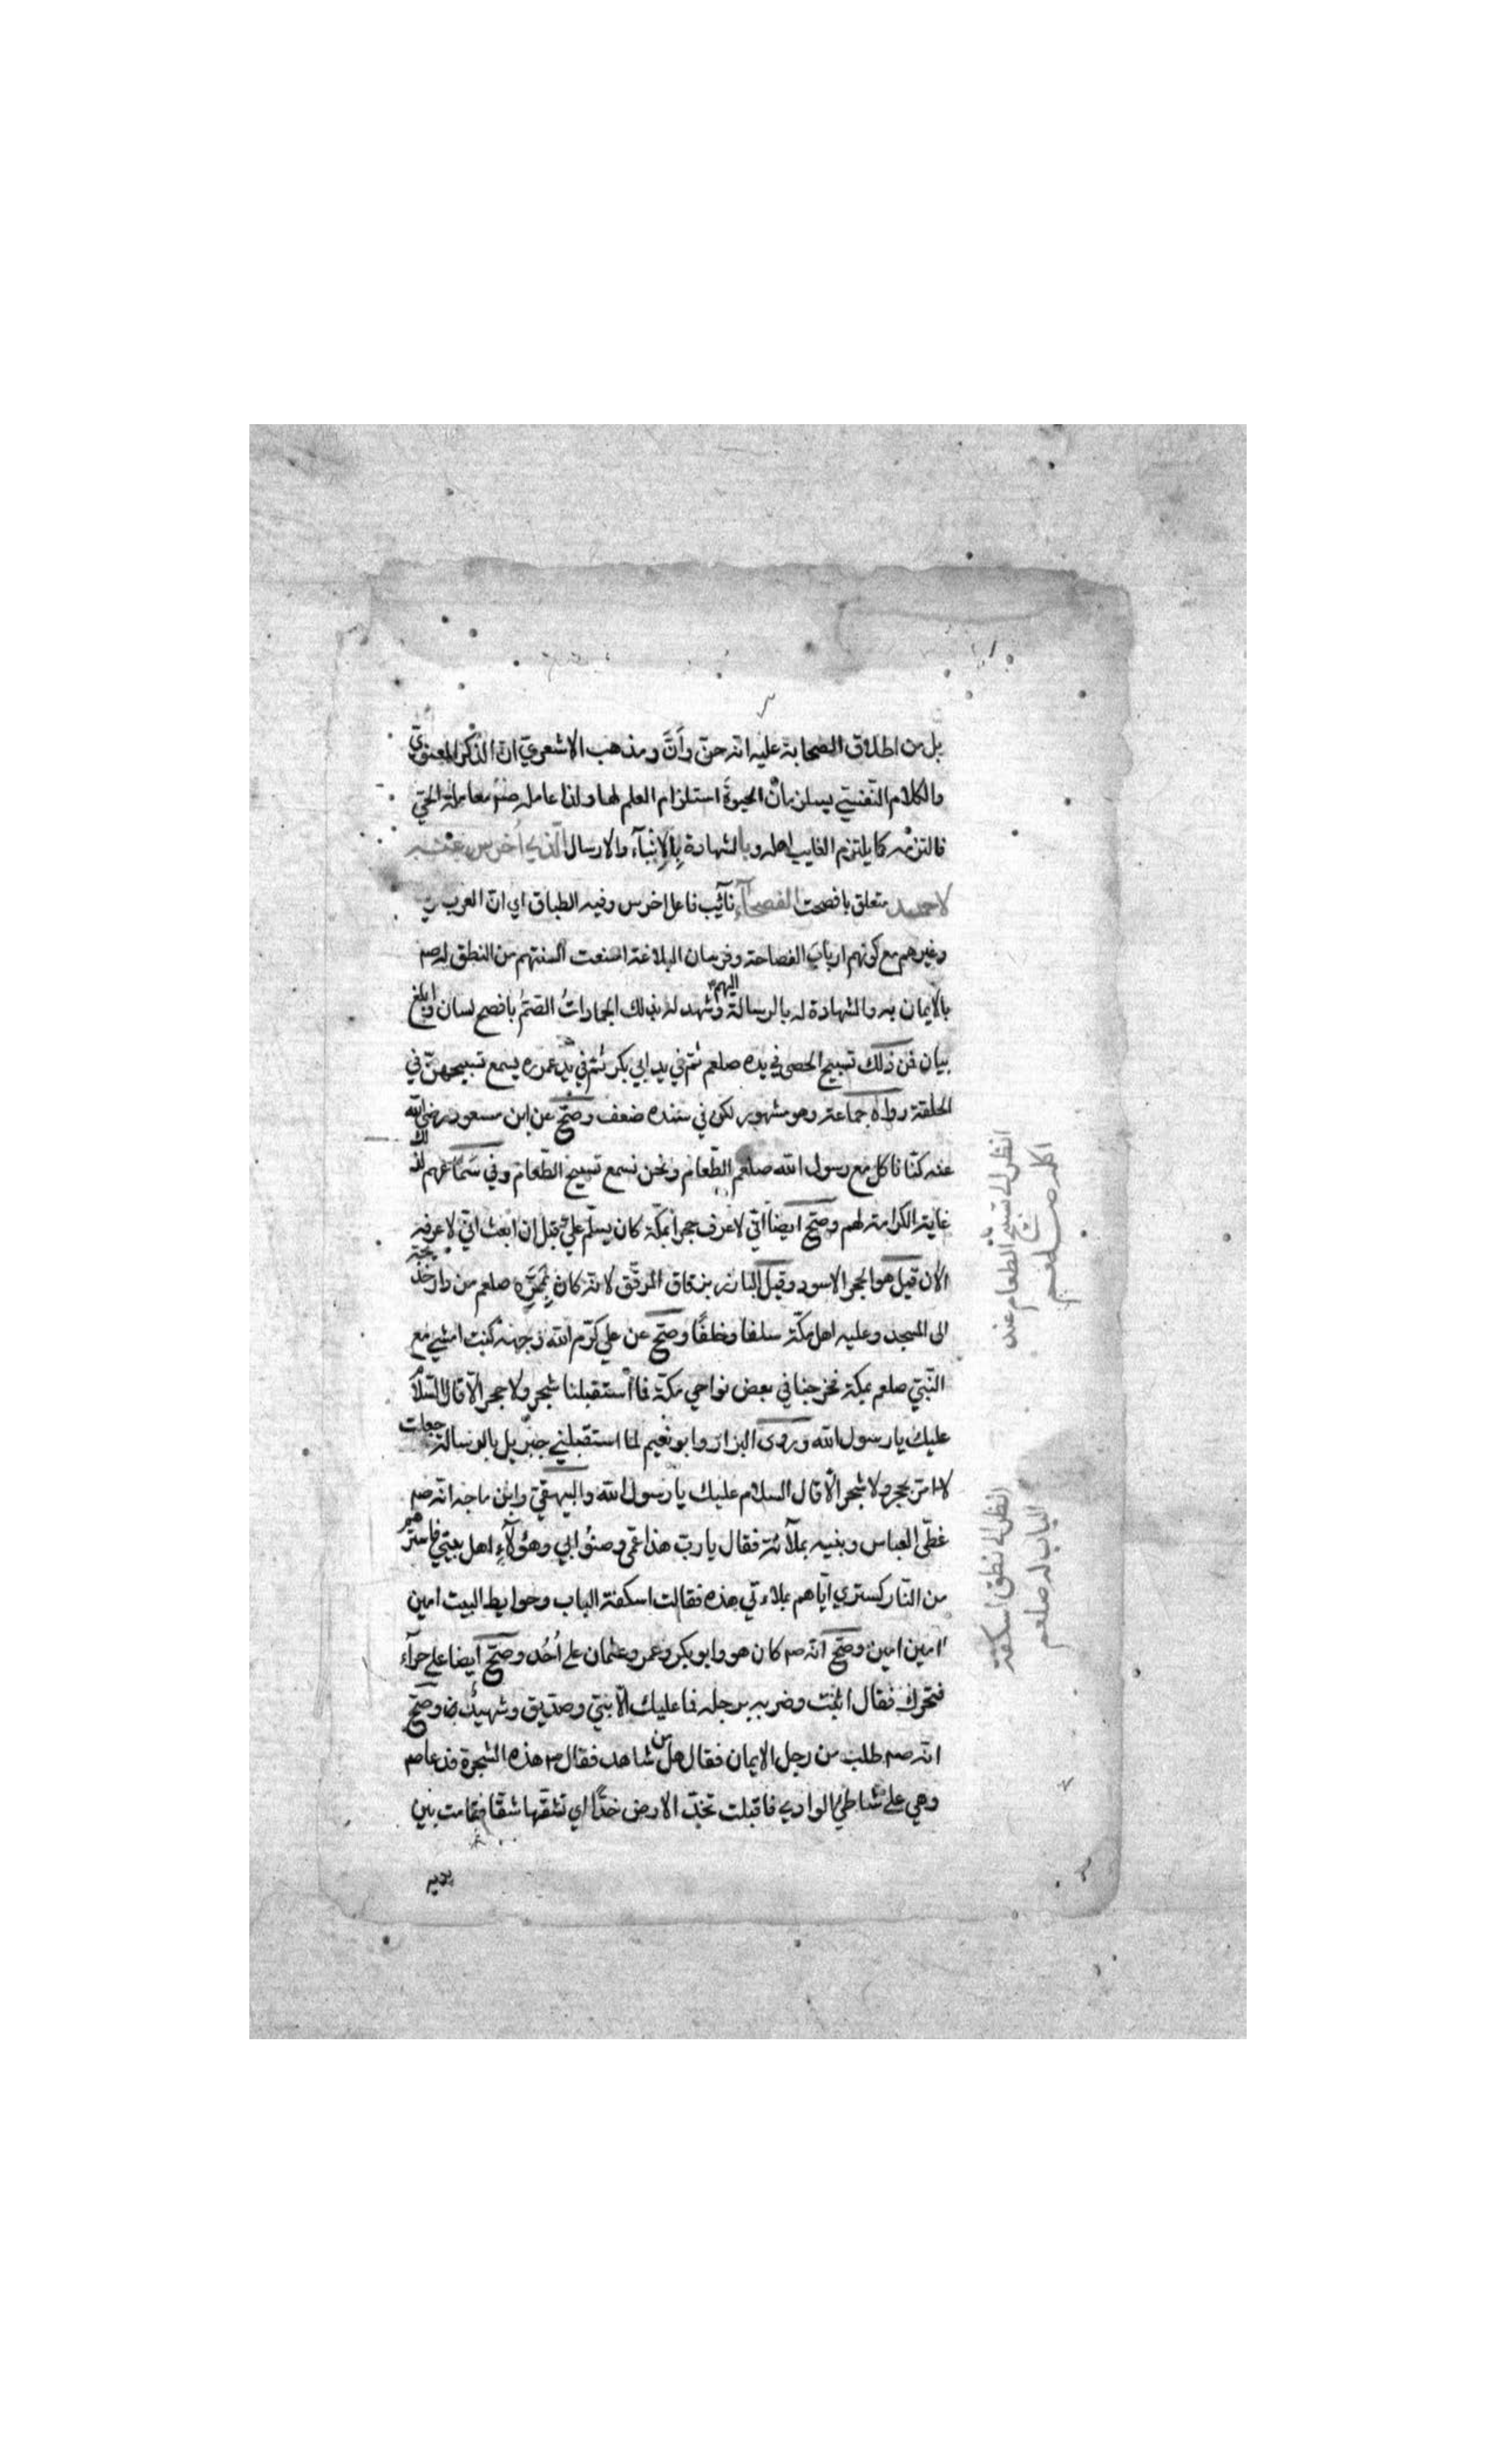 بل من اطلاق الصحابة عليه انه حن وأنَّ ومذهب الاشعري ان الذكر المعنوي
والكلام النفسيّ يستلزمان الحيوة استلزام العلم لها ولذا عامله صلم معاملة الحيّ
فالتزمه كما يلتزم الغايب اهله وبالشهادة بالإنبآء والارسال الّذي أخرس عنه
لاحمد متعلق بافصحت الفصحآء نائب فاعل اخرس وفيه الطباق اي انّ العرب
وغيرهم مع كونهم ارباب الفصاحة وفرسان البلاغة امتنعت ألسنتهم من النطق له صم
بالايمان به والشهادة له بالرسالة اليهم وشهد له بذلك الجماداتُ الصّمُ بافصح لسان وابلغ
بيان فمن ذلك تسبيح الحصى في يده صلعم ثمّ في يد ابي بكر ثمّ في يد عمر يسمع تسبيحهنّ في
الحلقة رواه جماعة وهو مشهور لكن في سنده ضعف وصحّ عن ابن مسعود رضي الله
عنه كنّا ناكل مع رسول الله صلعم الطّعام ونحن نسمع تسبيح الطّعام وفي سماعهم لذلك
غاية الكرامة لهم وصحّ ايضا اني لاعرف حجرا بمكّة كان يسلّم عليّ قبل ان ابعث انّي لاعرفه
الآن قيل هو الحجر الاسود وقيل البارز بزقاق المرفق لانّه كان بممرّه صلعم من دار خديجة
الى المسجد وعليه اهل مكّة سلفا وخلفًا وصحّ عن علي كرّم الله وجهه كنت امشي مع
النّبيّ صلعم بمكة فخرجنا في بعض نواحي مكّة فما استقبلنا شجر ولا حجر الّا قال السّلام
عليك يا رسول الله وروى البزار وابو نعيم لما استقبلني جبريل بالرسالة جعلت
لا امرّ بحجر ولا شجر الّا قال السلام عليك يا رسول الله والبيهقيّ وابن ماجه انه صم
غطّى العباس وبنيه بملآئة فقال يا ربّ هذا عمّي وصنوُ ابي وهؤلآءِ اهل بيتي فاسترهم
من النّار كستري ايّاهم بملاءتي هذه فقالت اسكفة الباب وحوايط البيت امين
امين امين وصحّ انّه صم كان هو وابو بكر وعمر وعثمان على أُحُد وصحّ ايضا على حرآء
فتحرك فقال اثبت وضربه برجله فما عليك الّا نبيّ وصدّيق وشهيدان وصحّ
انه صم طلب من رجل الايمان فقال هل من شاهد فقال صم هذه الشجرة فدعا صم
وهي على شاطئ الوادي فاقبلت تخدّ الارض خدًّا اي تشقّها شقّا فقامت بين
يديه
انظر الى تسبيح الطعام عند
اكله صلعم
انظر الى نطق اسكفة
الباب له صلعم